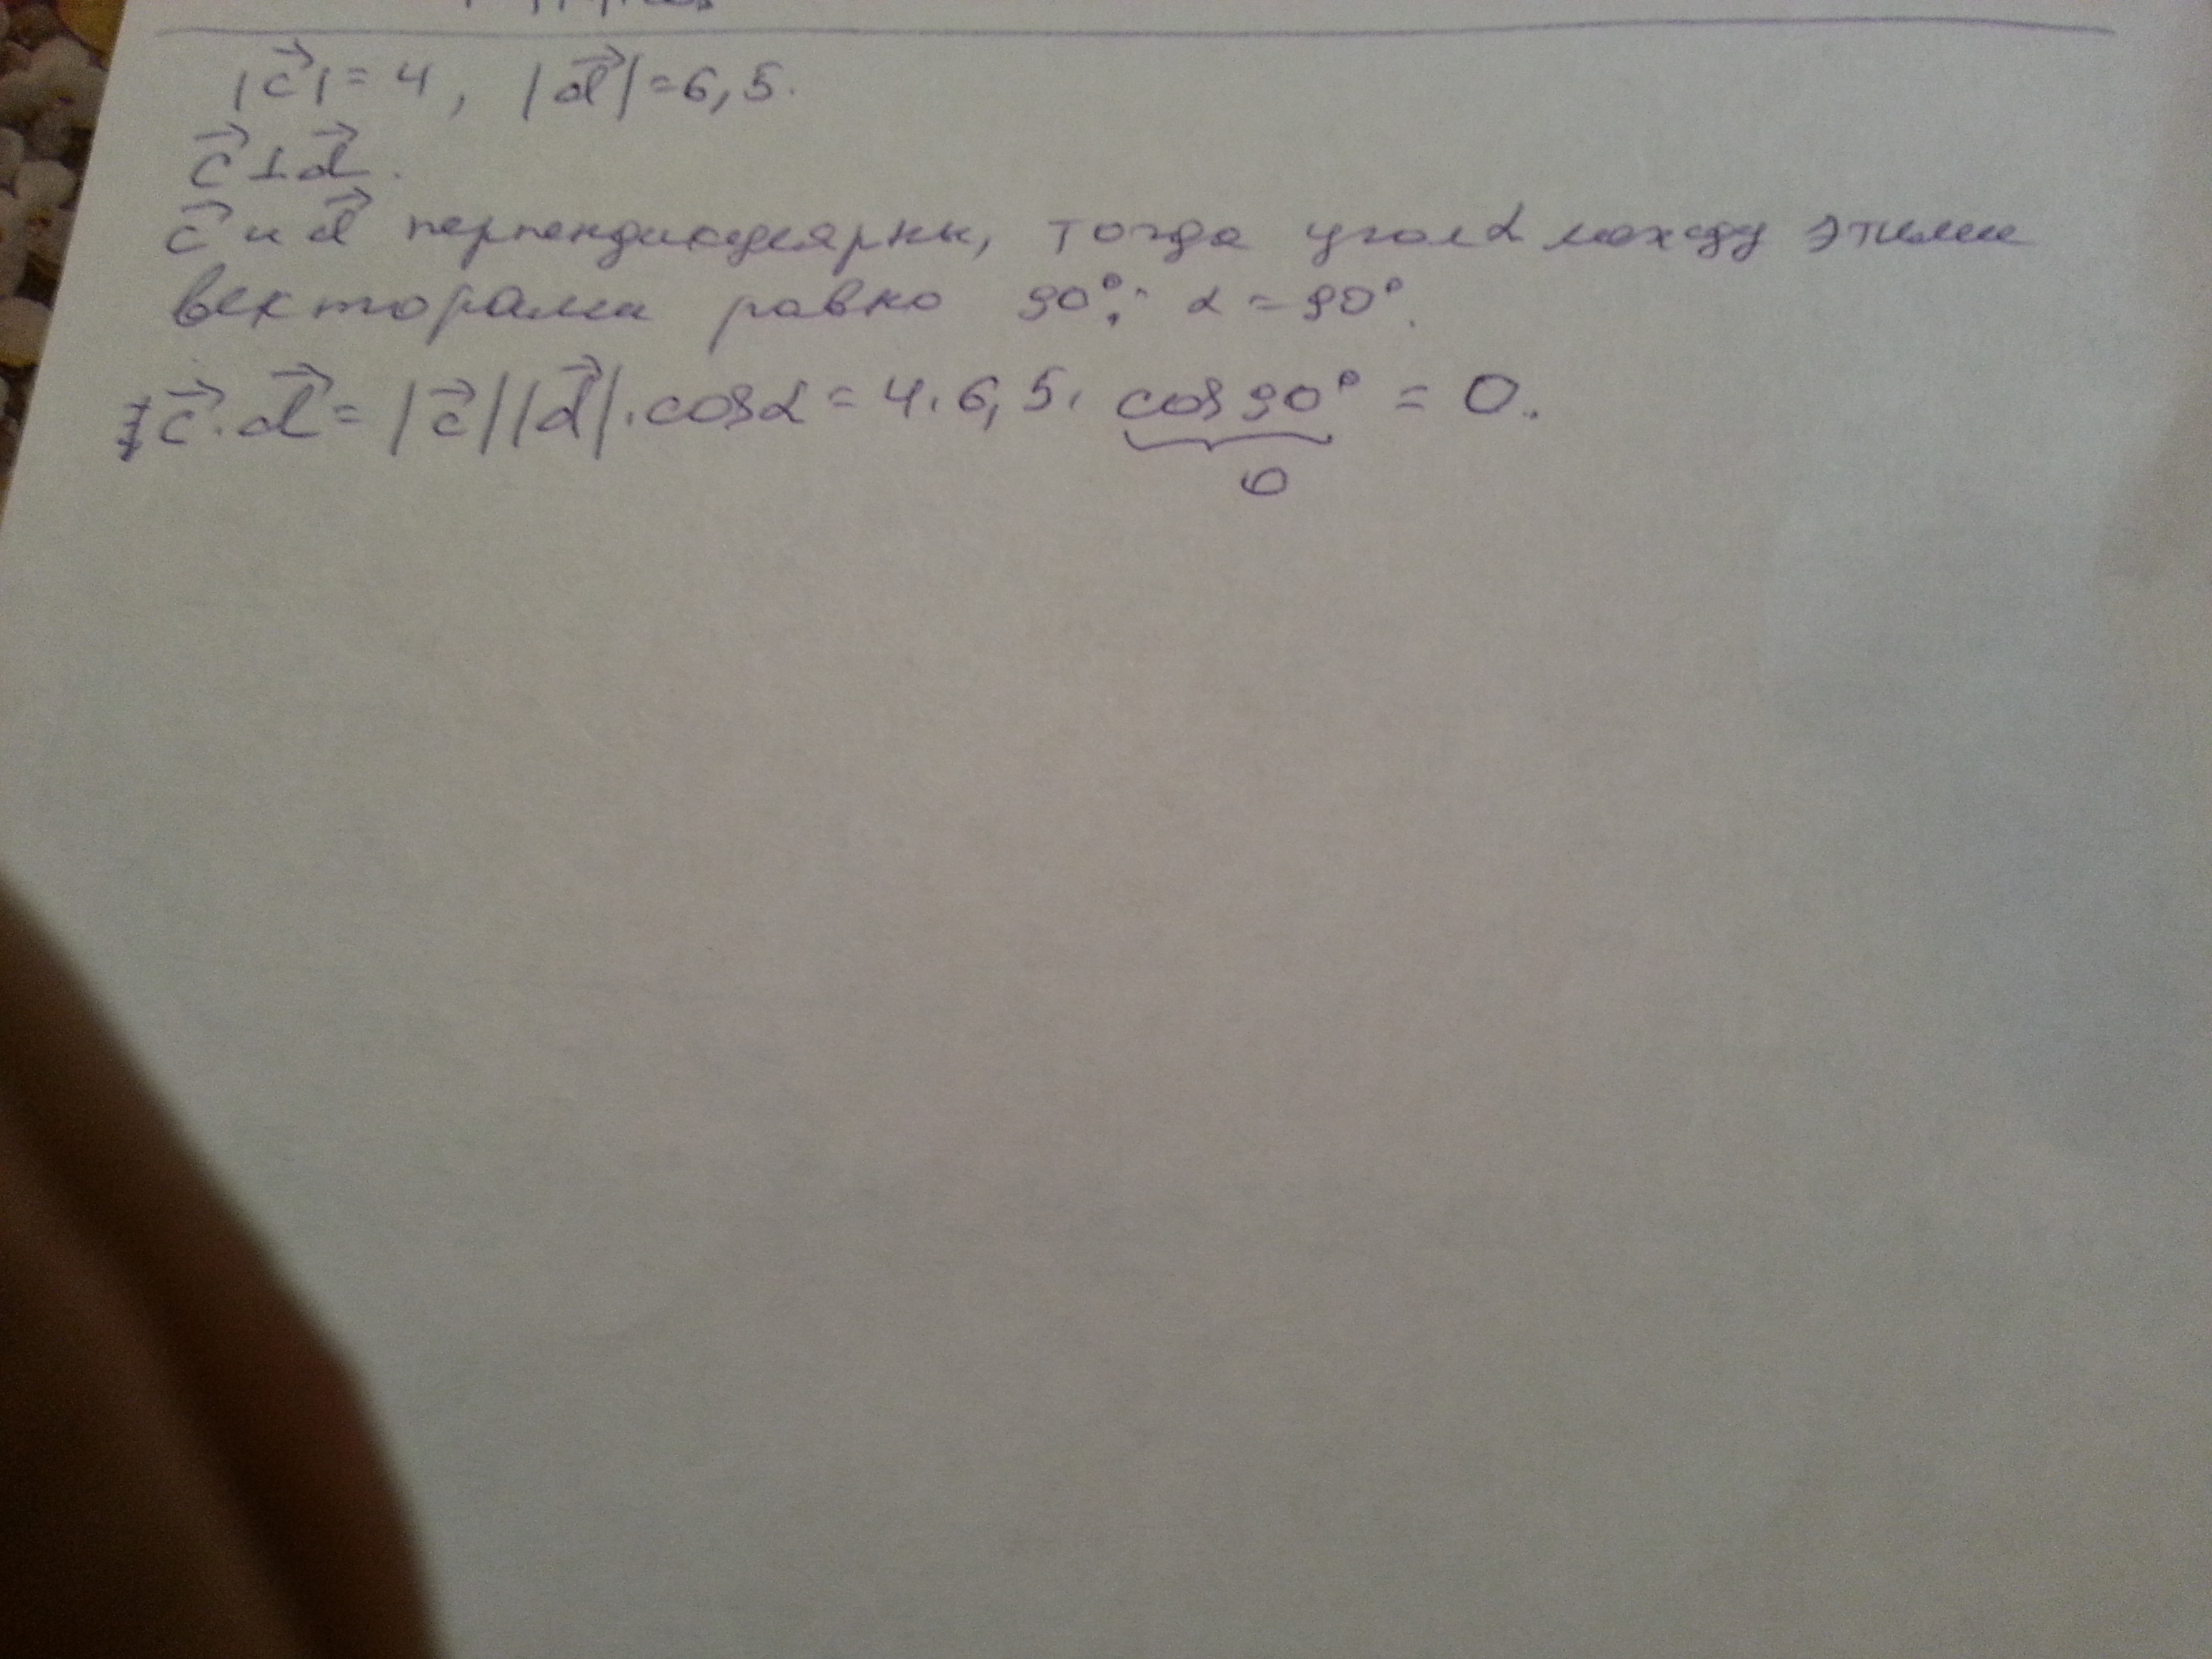 |c⃗| = 4, |d⃗| = 6,5.
c⃗ ⊥ d⃗.
c⃗ и d⃗ перпендикулярны, тогда угол α между этими
векторами равно 90°: α = 90°.
c⃗ · d⃗ = |c⃗||d⃗| · cosα = 4 · 6,5 · cos 90° = 0.
0